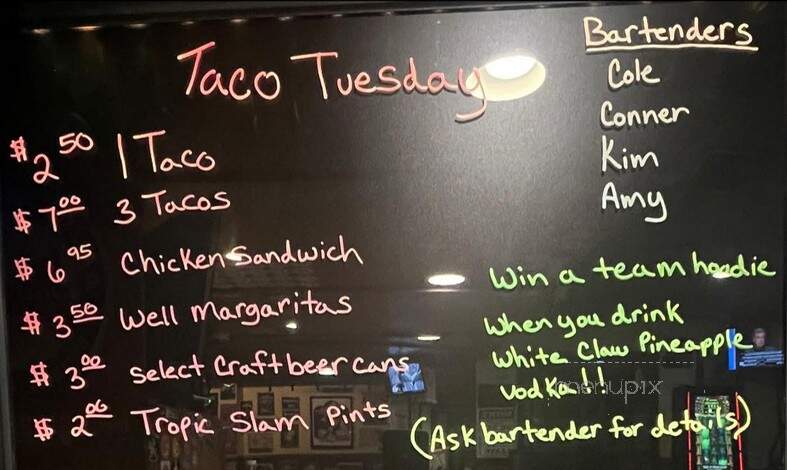 Taco Tuesday
$2.50 1 Taco
$7.00 3 Tacos
$6.95 Chicken Sandwich
$3.50 Well Margaritas
$3.00 Select Craft beer cans
$2.00 Tropic Slam Pints
Bartenders
Cole
Conner
Kim
Amy
Win a team hoodie
When you drink
White Claw Pineapple
vodka!!
(Ask bartender for details)
menupix